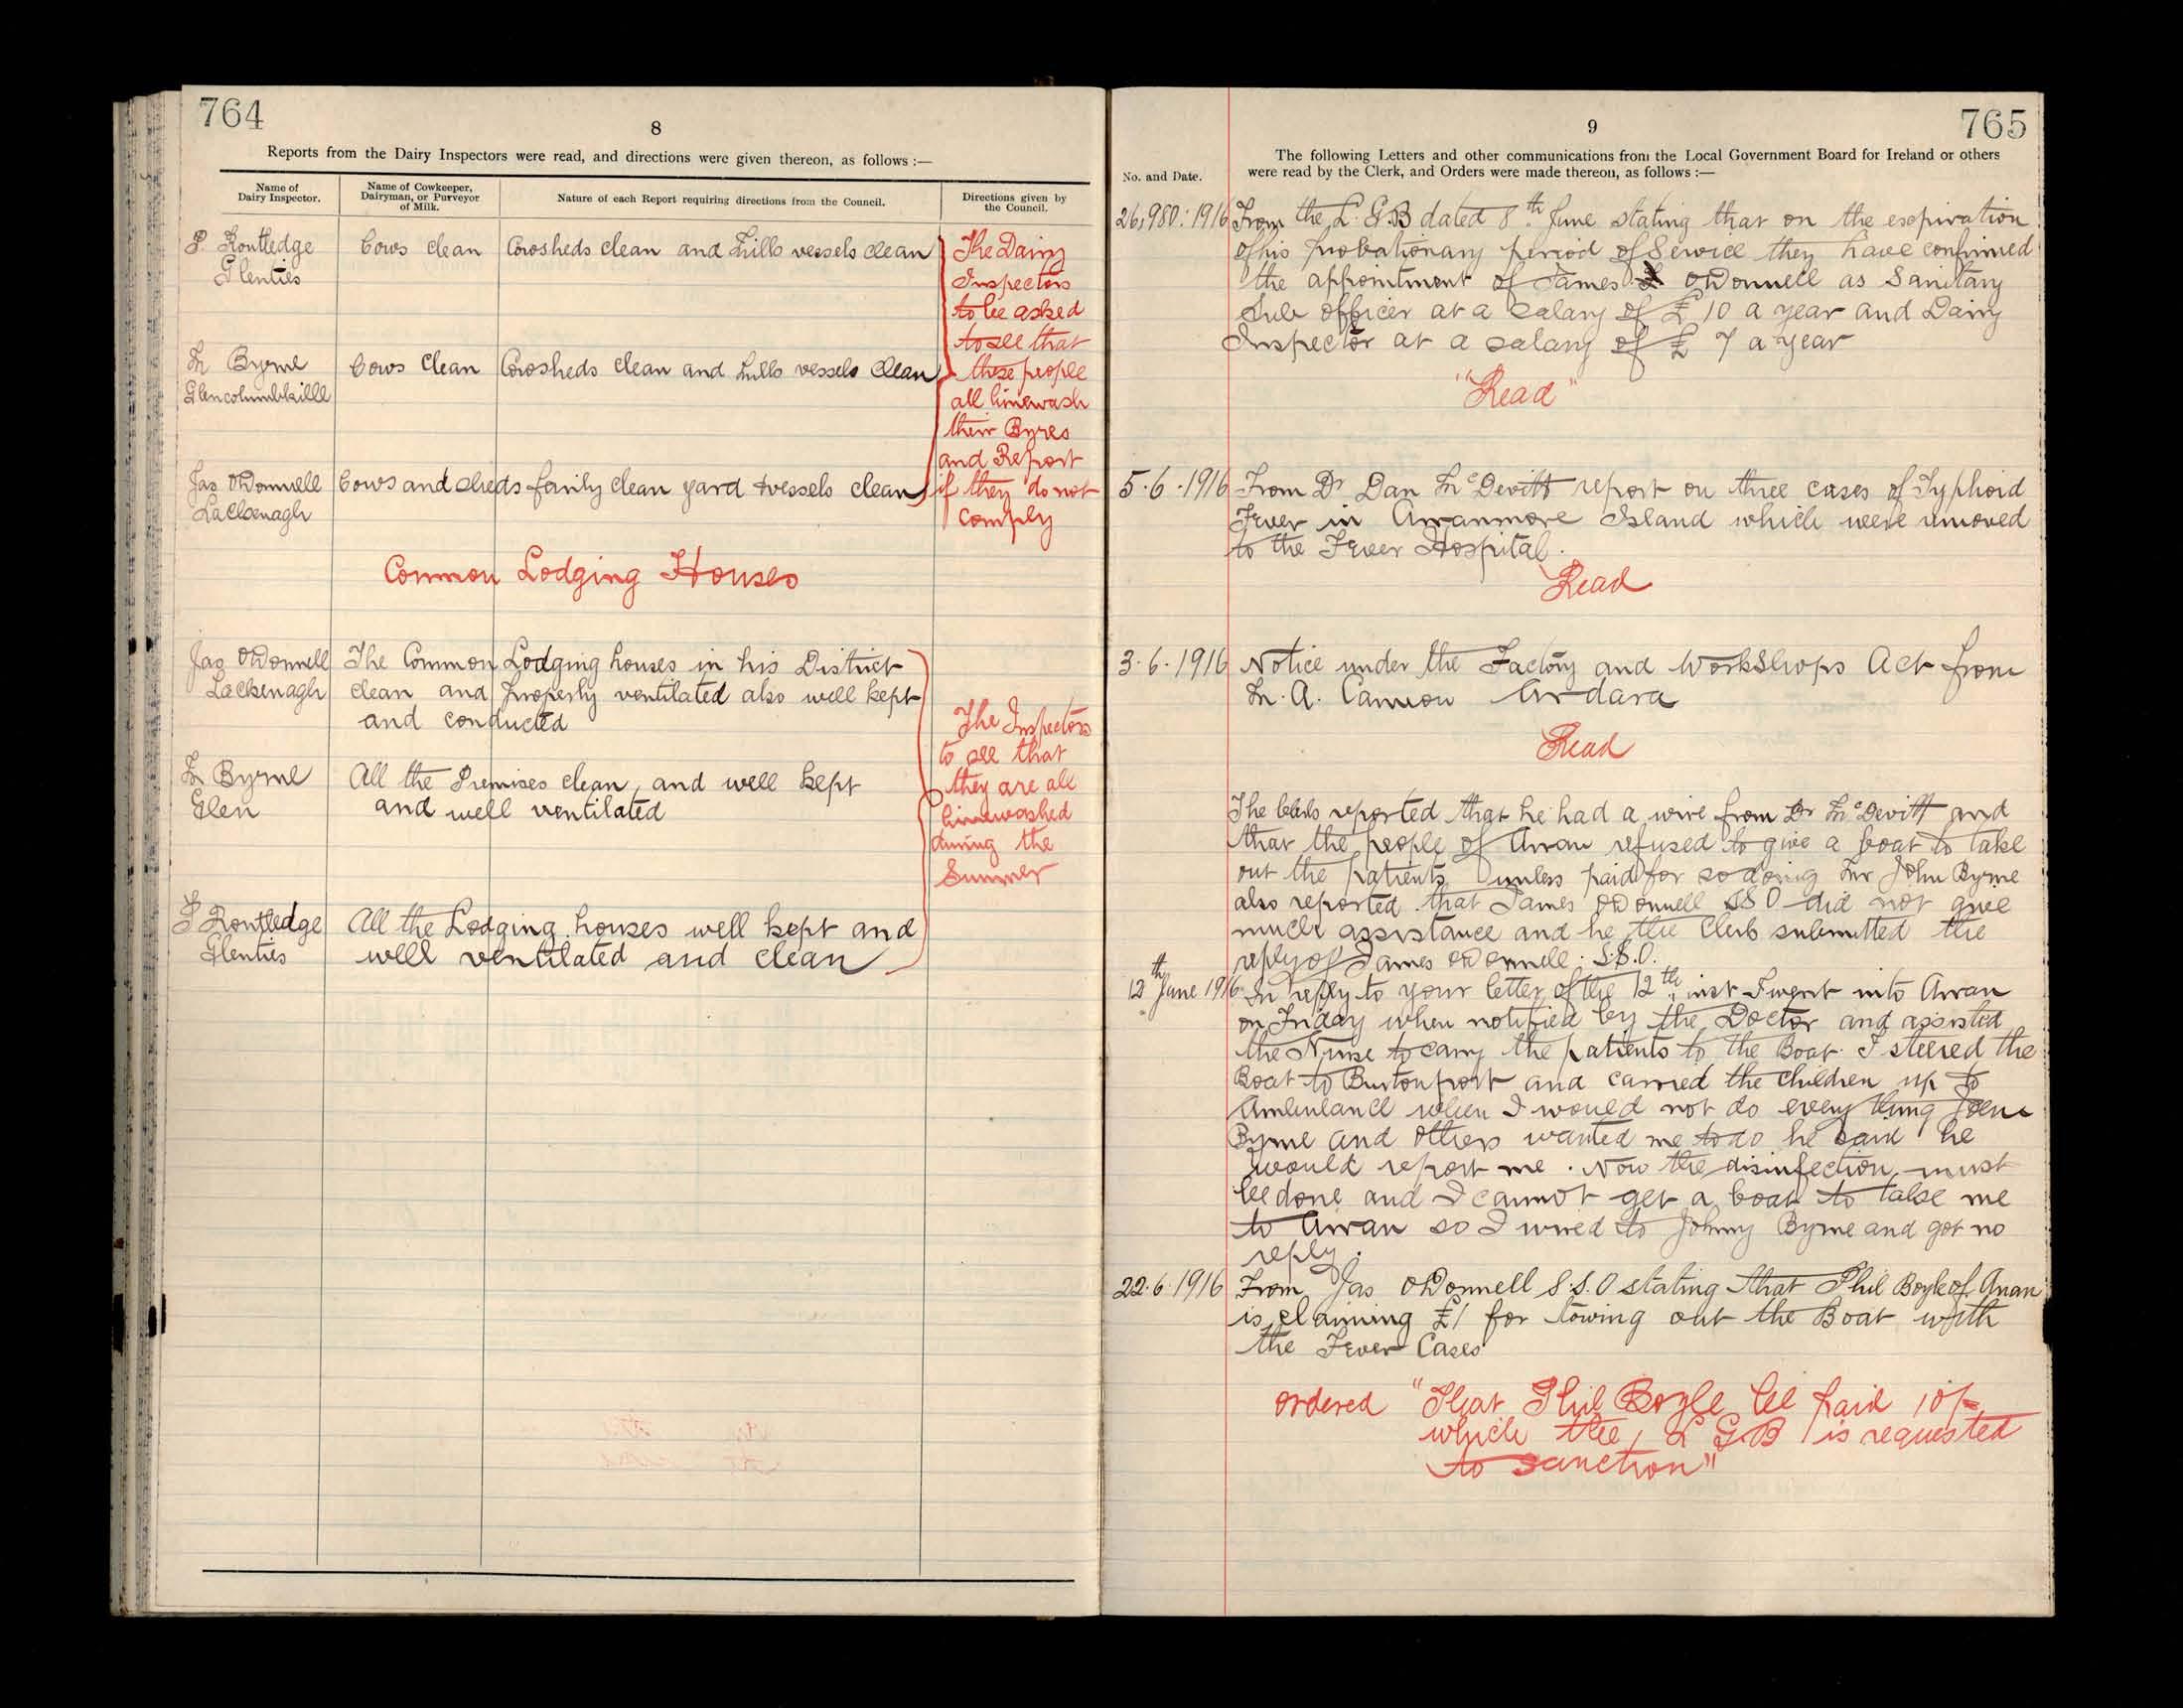 764
8
Reports from the Dairy Inspectors were read, and directions were given thereon, as follows :—
Name of Dairy Inspector.
Name of Cowkeeper, Dairyman, or Purveyor of Milk.
Nature of each Report requiring directions from the Council.
Directions given by the Council.
P. Routledge
Glenties
Cows clean
Cowsheds clean and Milk vessels clean
M Byrne
Glencolumbkille
Cows clean
Cowsheds clean and Milk vessels clean
Jas O'Donnell
Lackenagh
Cows and sheds fairly clean yard & vessels clean
The Dairy
Inspectors
to be asked
to see that
these people
all limewash
their Byres
and Report
if they do not
comply
Common Lodging Houses
Jas O'Donnell
Lackenagh
The Common Lodging houses in his District
clean and properly ventilated also well kept
and conducted
M Byrne
Glen
All the Premises clean, and well kept
and well ventilated
P Routledge
Glenties
All the Lodging houses well kept and
well ventilated and clean
The Inspectors
to see that
they are all
limewashed
during the
Summer
765
9
The following Letters and other communications from the Local Government Board for Ireland or others
were read by the Clerk, and Orders were made thereon, as follows :—
No. and Date.
26,980: 1916 From the L.G.B dated 8th June stating that on the expiration
of his probationary period of Service they have confirmed
the appointment of James O'Donnell as Sanitary
Sub officer at a salary of £10 a year and Dairy
Inspector at a salary of £7 a year
"Read"
5.6.1916 From Dr Dan McDevitt report on three cases of Typhoid
Fever in Arranmore Island which were removed
to the Fever Hospital.
Read
3.6.1916 Notice under the Factory and Workshops Act from
M. A. Cannon Ardara
Read
The Clerk reported that he had a wire from Dr McDevitt and
that the people of Arran refused to give a boat to take
out the patients unless paid for so doing Mr John Byrne
also reported that James O'Donnell SSO did not give
much assistance and he the Clerk submitted the
reply of James O'Donnell. S.S.O.
12th June 1916 In reply to your letter of the 12th inst I went into Arran
on Friday when notified by the Doctor and assisted
the Nurse to carry the patients to the Boat. I steered the
Boat to Burtonport and carried the children up to
Ambulance when I would not do every thing John
Byrne and others wanted me to do he said he
would report me. Now the disinfection must
be done and I cannot get a boat to take me
to Arran so I wired to Johnny Byrne and got no
reply.
22.6.1916 From Jas O'Donnell S.S.O stating that Phil Boyle of Arran
is claiming £1 for towing out the Boat with
the Fever Cases
Ordered "That Phil Boyle be paid 10/=
which the L G.B is requested
to sanction"